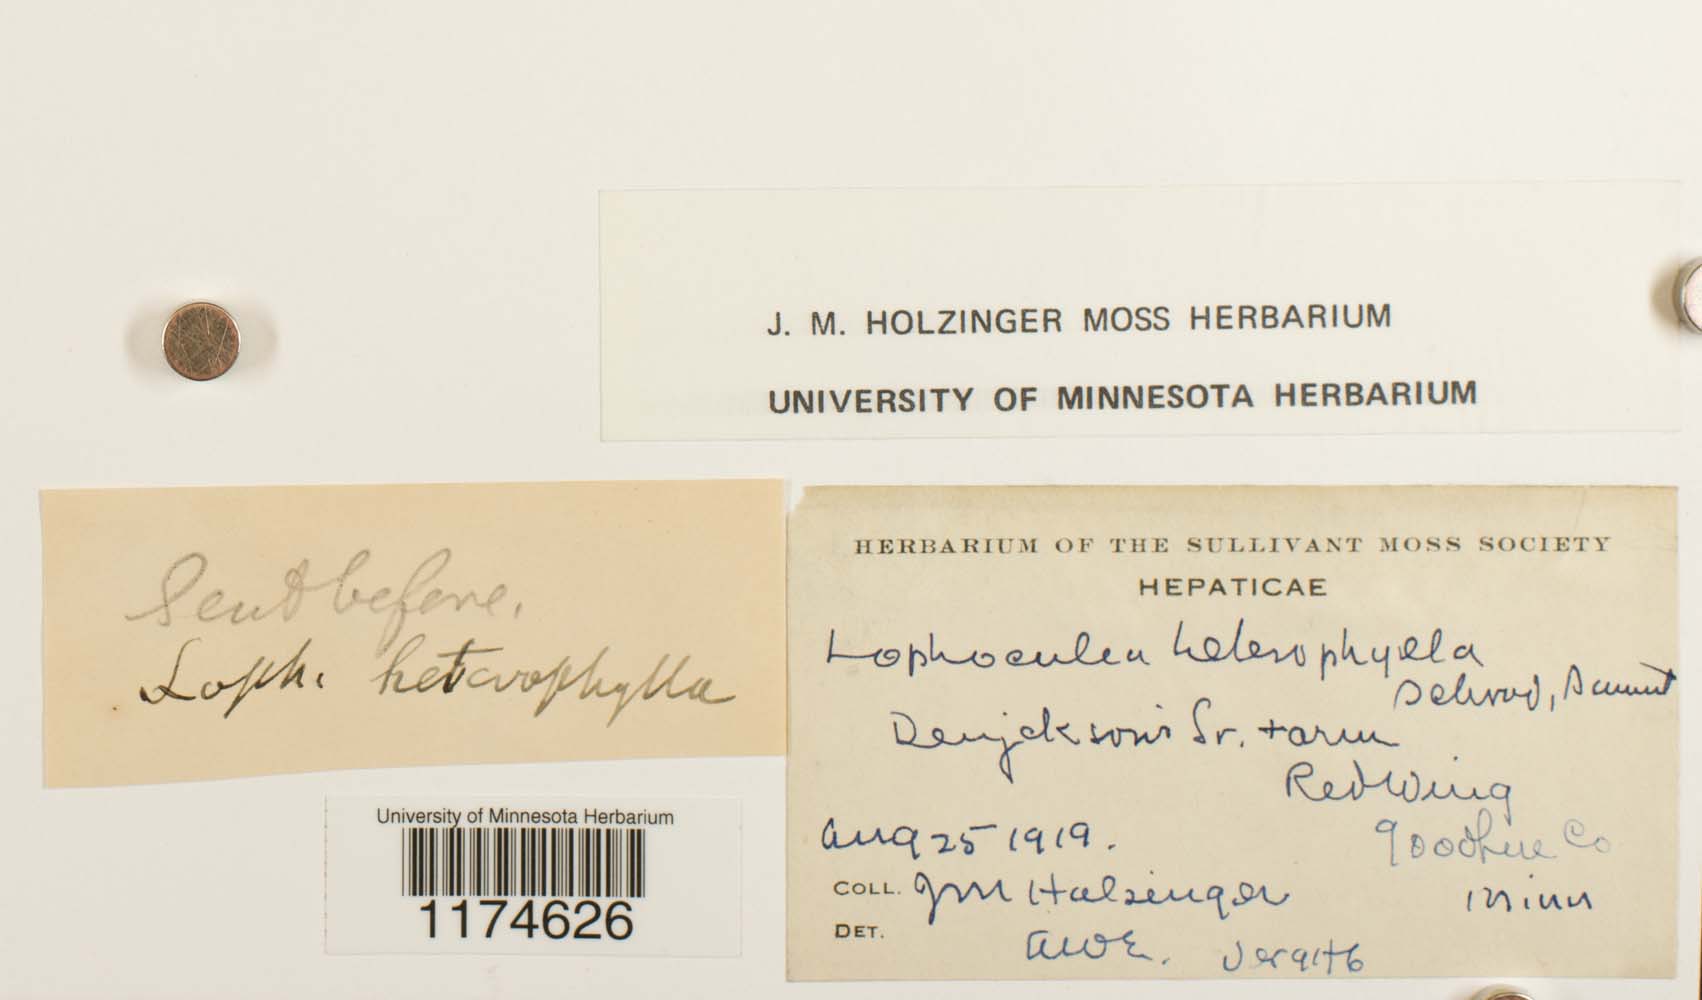 J. M. HOLZINGER MOSS HERBARIUM
UNIVERSITY OF MINNESOTA HERBARIUM
Sent before.
Loph. heterophylla
University of Minnesota Herbarium
1174626
HERBARIUM OF THE SULLIVANT MOSS SOCIETY
HEPATICAE
Lophocolea heterophylla
Schrad, Dumort
Sr. farm
Red Wing
Aug 25 1919.
Goodhue Co
COLL. JM Holzinger
Minn
DET.
AWE.